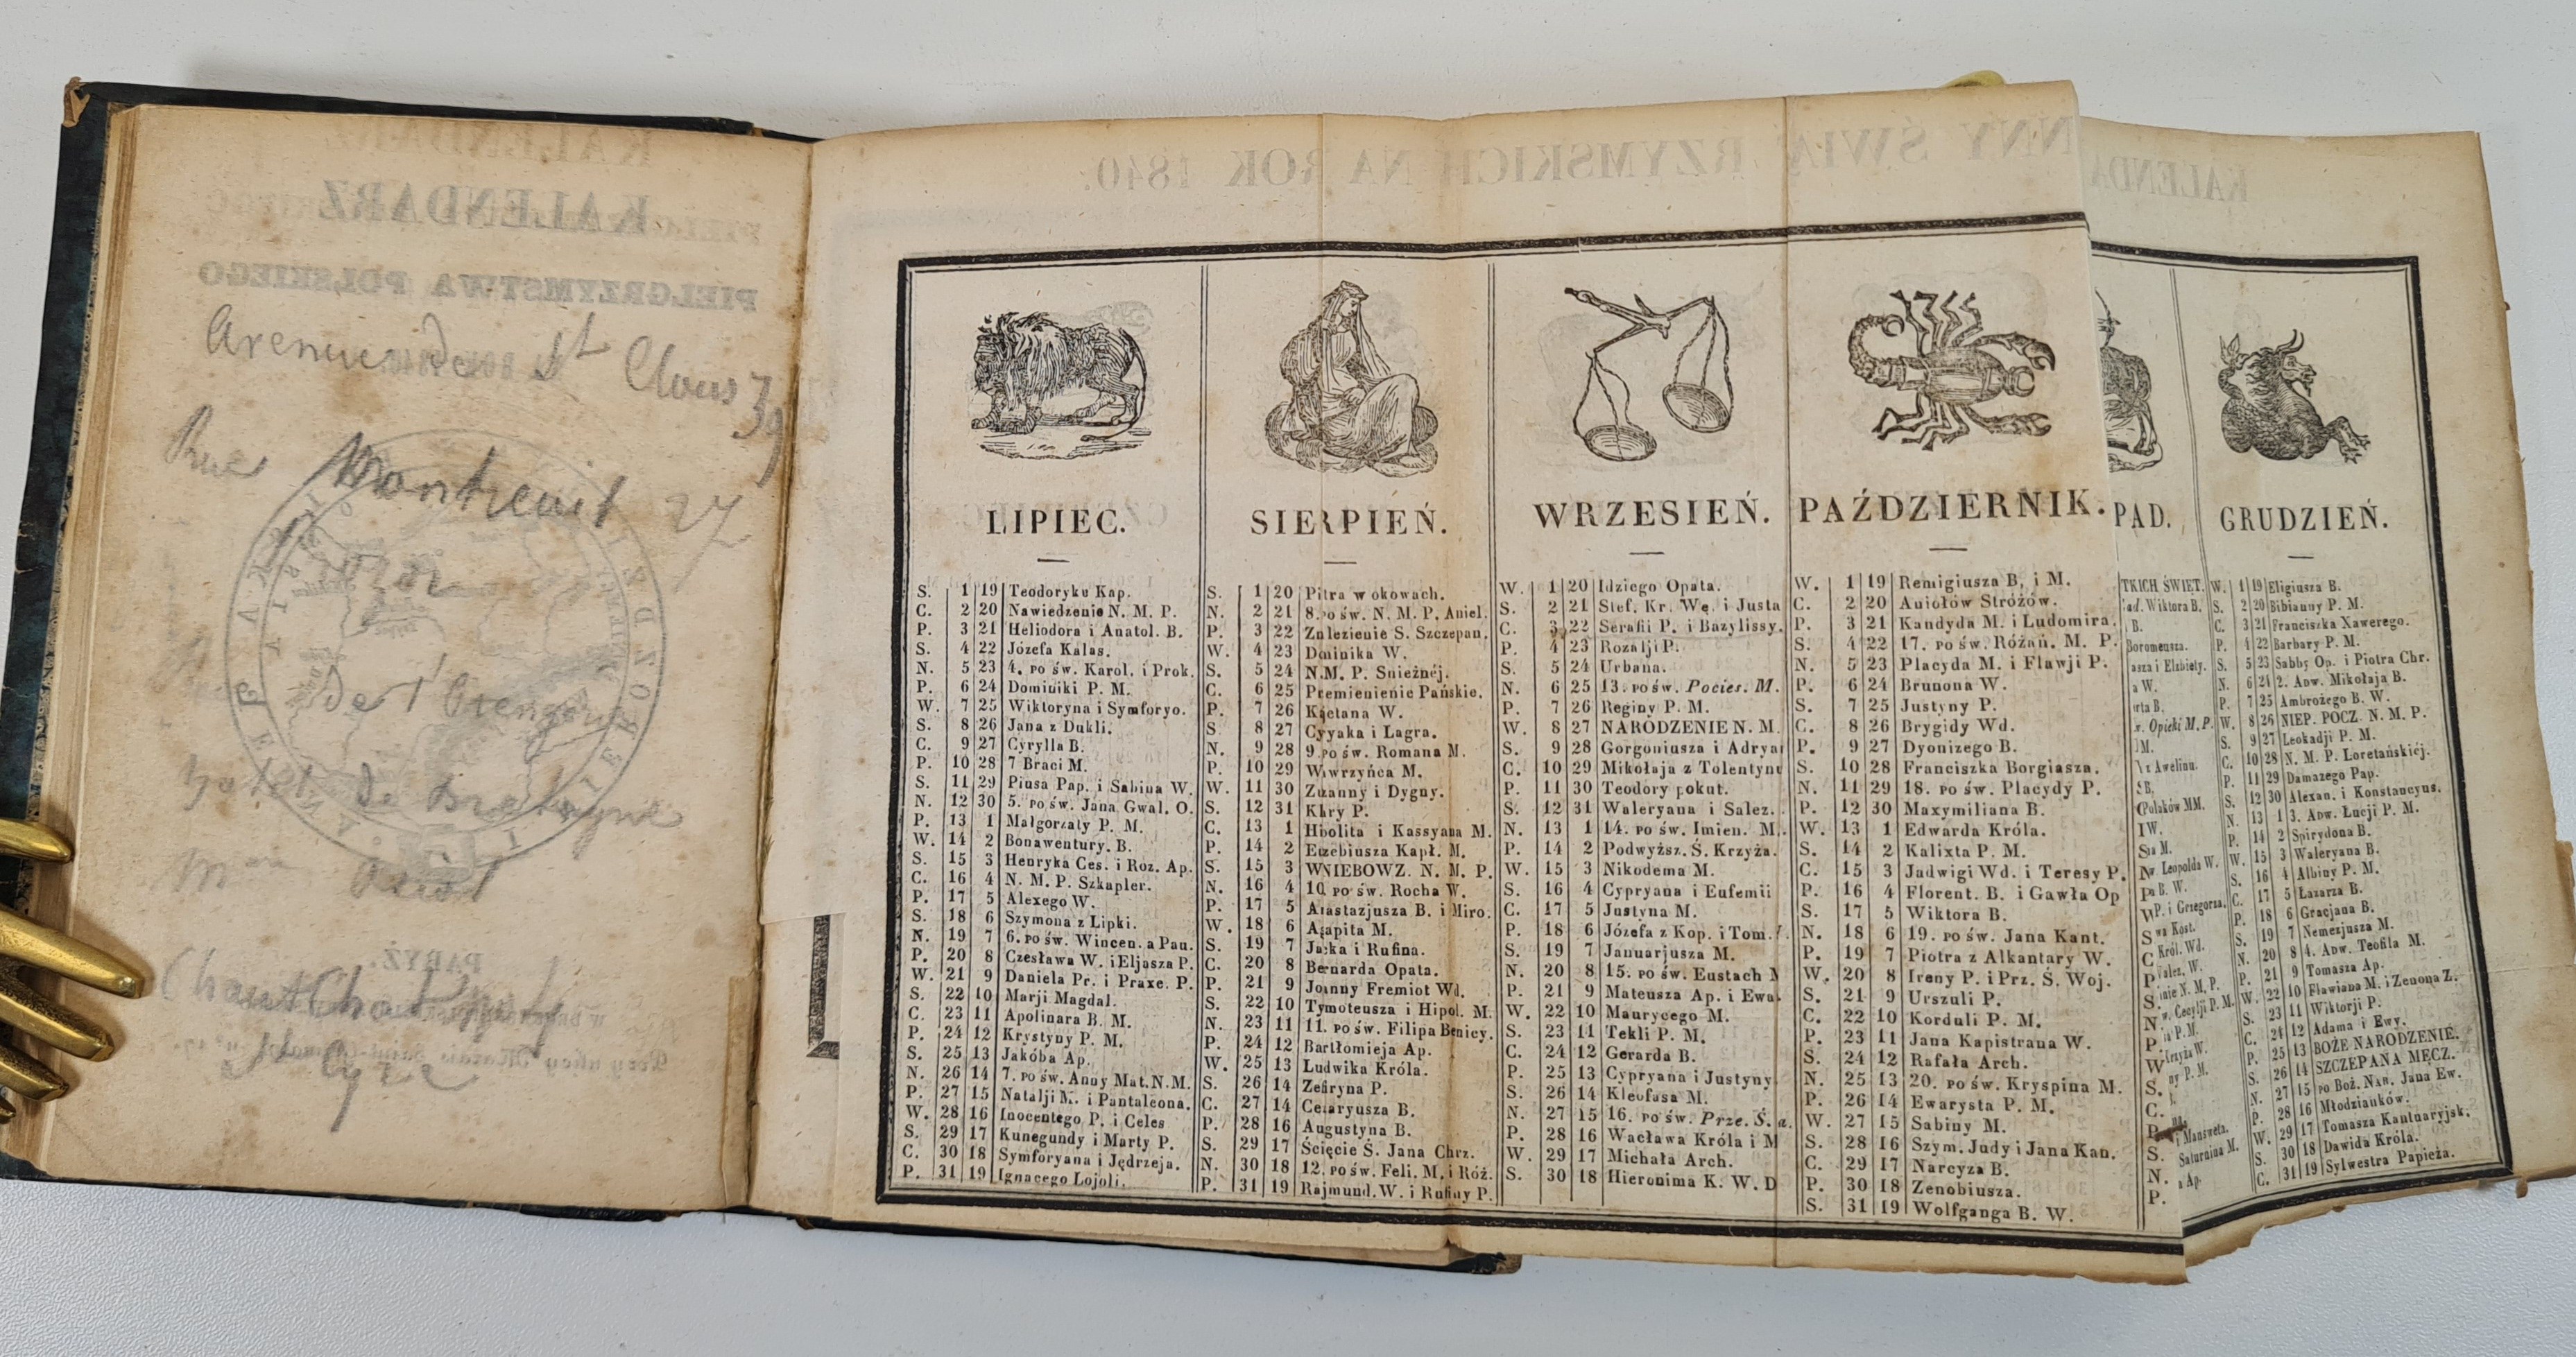 KALENDARZ
PIELGRZYMSTWA POLSKIEGO
de St
Rue Montreuil 27
de l'
hotel de Bretagne
PARYŻ.
St Cyr
RZYMSKICH NA ROK 1840.
LIPIEC.
S. 1 19 Teodoryka Kap.
C. 2 20 Nawiedzenie N. M. P.
P. 3 21 Heliodora i Anatol. B.
S. 4 22 Józefa Kalas.
N. 5 23 4. po św. Karol. i Prok.
P. 6 24 Dominiki P. M.
W. 7 25 Wiktoryna i Symforyo.
S. 8 26 Jana z Dukli.
C. 9 27 Cyrylla B.
P. 10 28 7 Braci M.
S. 11 29 Piusa Pap. i Sabina W.
N. 12 30 5. po św. Jana Gwal. O.
P. 13 1 Małgorzaty P. M.
W. 14 2 Bonawentury. B.
S. 15 3 Henryka Ces. i Roz. Ap.
C. 16 4 N. M. P. Szkapler.
P. 17 5 Alexego W.
S. 18 6 Szymona z Lipki.
N. 19 7 6. po św. Wincen. a Pau.
P. 20 8 Czesława W. i Eljasza P.
W. 21 9 Daniela Pr. i Praxe. P.
S. 22 10 Marji Magdal.
C. 23 11 Apolinara B. M.
P. 24 12 Krystyny P. M.
S. 25 13 Jakóba Ap.
N. 26 14 7. po św. Anny Mat. N. M.
P. 27 15 Natalji M. i Pantaleona.
W. 28 16 Inocentego P. i Celes
S. 29 17 Kunegundy i Marty P.
C. 30 18 Symforyana i Jędrzeja.
P. 31 19 Ignacego Lojoli.
SIERPIEŃ.
S. 1 20 Pitra w okowach.
N. 2 21 8. po św. N. M. P. Aniel.
P. 3 22 Znlezienie S. Szczepan.
W. 4 23 Dominika W.
S. 5 24 N. M. P. Snieżnéj.
C. 6 25 Przemienienie Pańskie.
P. 7 26 Kajetana W.
S. 8 27 Cyyaka i Lagra.
N. 9 28 9. po św. Romana M.
P. 10 29 Wawrzyńca M.
W. 11 30 Zuzanny i Dygny.
S. 12 31 Klary P.
C. 13 1 Hipolita i Kassyana M.
P. 14 2 Euzebiusza Kapł. M.
S. 15 3 WNIEBOWZ. N. M. P.
N. 16 4 10. po św. Rocha W.
P. 17 5 Anastazjusza B. i Miro.
W. 18 6 Agapita M.
S. 19 7 Jacka i Rufina.
C. 20 8 Bernarda Opata.
P. 21 9 Joanny Fremiot Wd.
S. 22 10 Tymoteusza i Hipol. M.
N. 23 11 11. po św. Filipa Benicy.
P. 24 12 Bartłomieja Ap.
W. 25 13 Ludwika Króla.
S. 26 14 Zefiryna P.
C. 27 14 Cezaryusza B.
P. 28 16 Augustyna B.
S. 29 17 Ścięcie Ś. Jana Chrz.
N. 30 18 12. po św. Feli. M. i Róż.
P. 31 19 Rajmund. W. i Rufiny P.
WRZESIEŃ.
W. 1 20 Idziego Opata.
S. 2 21 Stef. Kr. Wę. i Justa
C. 3 22 Serafii P. i Bazylissy.
P. 4 23 Rozalji P.
S. 5 24 Urbana.
N. 6 25 13. po św. Pocies. M.
P. 7 26 Reginy P. M.
W. 8 27 NARODZENIE N. M.
S. 9 28 Gorgoniusza i Adrya
C. 10 29 Mikołaja z Tolentynu
P. 11 30 Teodory pokut.
S. 12 31 Waleryana i Salez.
N. 13 1 14. po św. Imien. M.
P. 14 2 Podwyższ. Ś. Krzyża.
W. 15 3 Nikodema M.
S. 16 4 Cypryana i Eufemii
C. 17 5 Justyna M.
P. 18 6 Józefa z Kop. i Tom.
S. 19 7 Januarjusza M.
N. 20 8 15. po św. Eustach
P. 21 9 Mateusza Ap. i Ewa.
W. 22 10 Maurycego M.
S. 23 11 Tekli P. M.
C. 24 12 Gerarda B.
P. 25 13 Cypryana i Justyny
S. 26 14 Kleofasa M.
N. 27 15 16. po św. Prze. Ś. a.
P. 28 16 Wacława Króla i M
W. 29 17 Michała Arch.
S. 30 18 Hieronima K. W. D
PAŹDZIERNIK.
W. 1 19 Remigiusza B. i M.
C. 2 20 Aniołów Stróżów.
P. 3 21 Kandyda M. i Ludomira.
S. 4 22 17. po św. Różań. M. P.
N. 5 23 Placyda M. i Flawji P.
P. 6 24 Brunona W.
S. 7 25 Justyny P.
C. 8 26 Brygidy Wd.
P. 9 27 Dyonizego B.
S. 10 28 Franciszka Borgiasza.
N. 11 29 18. po św. Placydy P.
P. 12 30 Maxymiliana B.
W. 13 1 Edwarda Króla.
S. 14 2 Kalixta P. M.
C. 15 3 Jadwigi Wd. i Teresy P.
P. 16 4 Florent. B. i Gawła Op
S. 17 5 Wiktora B.
N. 18 6 19. po św. Jana Kant.
P. 19 7 Piotra z Alkantary W.
W. 20 8 Ireny P. i Prz. Ś. Woj.
S. 21 9 Urszuli P.
C. 22 10 Korduli P. M.
P. 23 11 Jana Kapistrana W.
S. 24 12 Rafała Arch.
N. 25 13 20. po św. Kryspina M.
P. 26 14 Ewarysta P. M.
W. 27 15 Sabiny M.
S. 28 16 Szym. Judy i Jana Kan.
C. 29 17 Narcyza B.
P. 30 18 Zenobiusza.
S. 31 19 Wolfganga B. W.
PAD.
TKICH ŚWIĘT.
Wiktora B.
B.
Boromeusza.
i Elzbiety.
W.
B.
Opieki M. P.
M.
Awelina.
B.
Polaków MM.
W.
M.
Leopolda W.
B. W.
P. i Grzegorza.
Kost.
Król. Wd.
W.
N. M. P.
Cecylji P. M.
P. M.
Krzyża W.
P. M.
i Mansweta.
Saturnina M.
Ap.
GRUDZIEŃ.
W. 1 19 Eligiusza B.
S. 2 20 Bibianny P. M.
C. 3 21 Franciszka Xawerego.
P. 4 22 Barbary P. M.
S. 5 23 Sabby Op. i Piotra Chr.
N. 6 24 2. Adw. Mikołaja B.
P. 7 25 Ambrożego B. W.
W. 8 26 NIEP. POCZ. N. M. P.
S. 9 27 Leokadji P. M.
C. 10 28 N. M. P. Loretańskiéj.
P. 11 29 Damazego Pap.
S. 12 30 Alexan. i Konstancyus.
N. 13 1 3. Adw. Łucji P. M.
P. 14 2 Spirydona B.
W. 15 3 Waleryana B.
S. 16 4 Albiny P. M.
C. 17 5 Łazarza B.
P. 18 6 Gracjana B.
S. 19 7 Nemezjusza M.
N. 20 8 4. Adw. Teofila M.
P. 21 9 Tomasza Ap.
W. 22 10 Flawiana M. i Zenona Z.
S. 23 11 Wiktorji P.
C. 24 12 Adama i Ewy.
P. 25 13 BOŻE NARODZENIE.
S. 26 14 SZCZEPANA MĘCZ.
N. 27 15 po Boż. Nar. Jana Ew.
P. 28 16 Młodzianków.
W. 29 17 Tomasza Kantuaryjsk.
S. 30 18 Dawida Króla.
C. 31 19 Sylwestra Papieża.